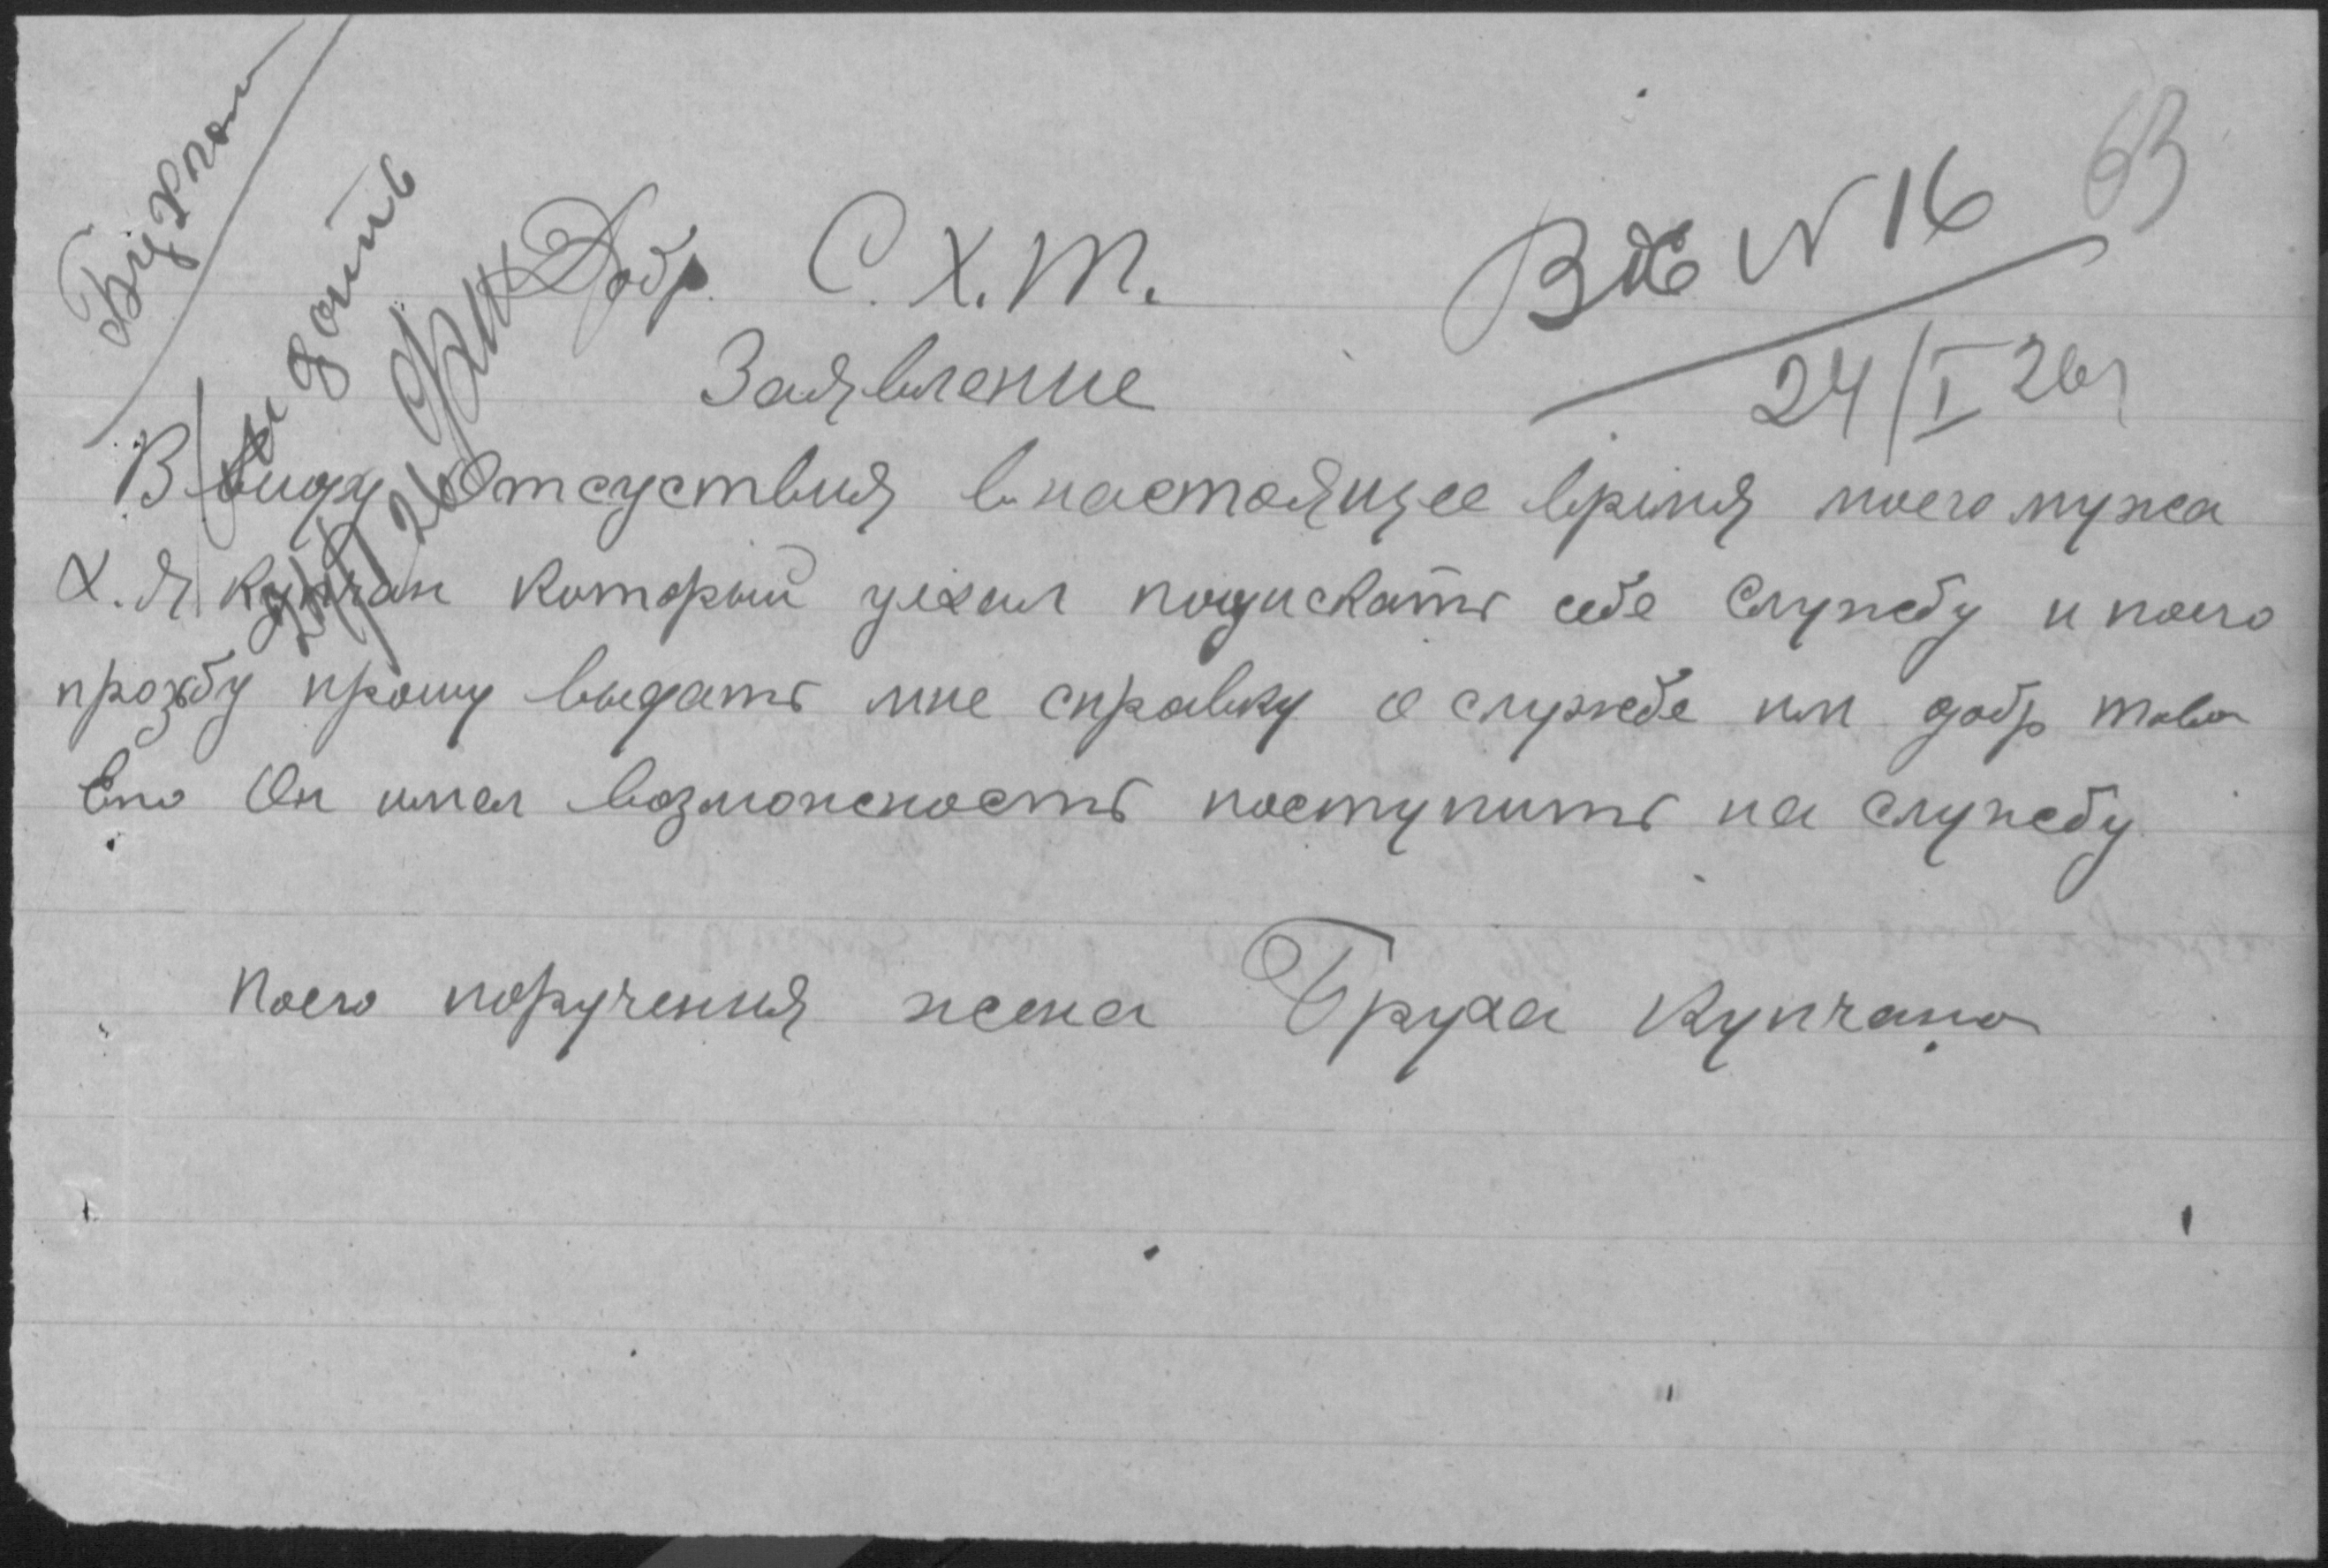 63
Вх N 16
24/I 26 г
Бухгал
Выдать
24/I 26
Добр. С. Х. Т.
Заявление
В виду Отсуствия в настоящее время моего мужа
Х. Я Купчан который уехал подискать себе Службу и поего
прозбу прошу выдать мне справку о службе им добр това
Що Он имел возможность поступить на службу
Поего поручения жена Бруха Купчано